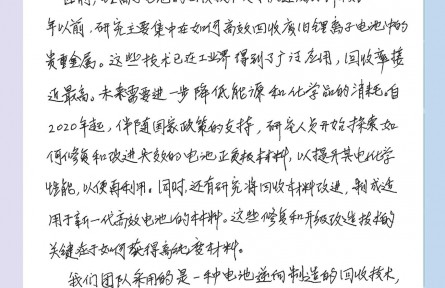 年以前，研究主要集中在如何高效回收废旧锂离子电池中的
贵重金属。这些技术已在工业界得到了广泛应用，回收率接
近最高。未来需要进一步降低能源和化学品的消耗。自
2020年起，伴随国家政策的支持，研究人员开始探索如
何修复和改进失效的电池正负极材料，以提升其电化学
性能，以便再利用。同时，还有研究将回收材料改进，制成适
用于新一代高效电池的材料。这些修复和升级改造技术的
关键在于如何获得高纯度材料。
我们团队采用的是一种电池逆向制造的回收技术，